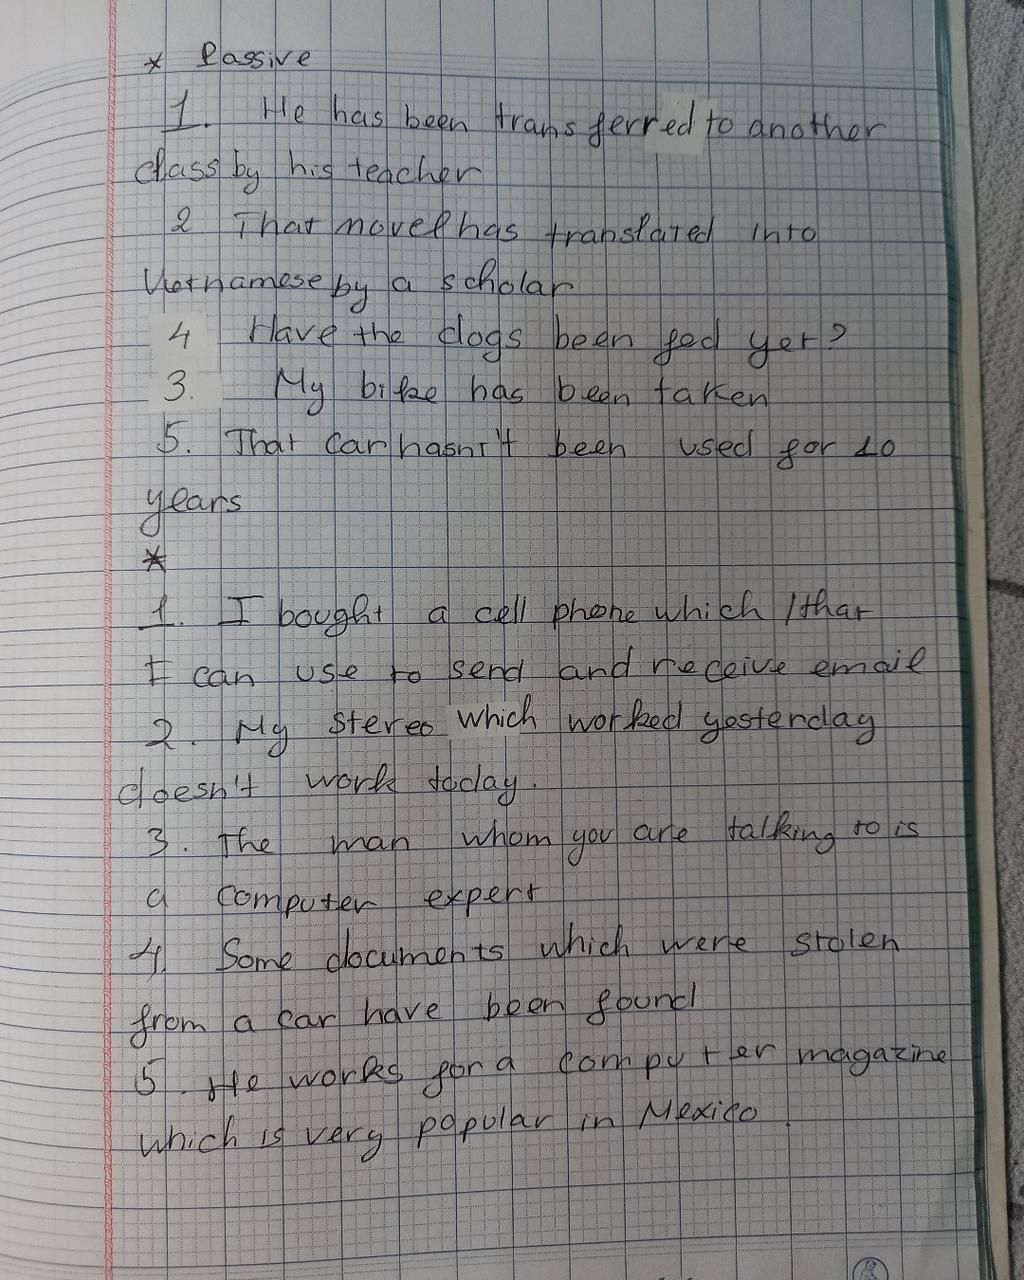 * Passive
1. He has been transferred to another
class by his teacher
2 That novel has translated into
Vietnamese by a scholar
4 Have the dogs been fed yet?
3. My bike has been taken
5. That car hasn't been used for 10
years
*
1. I bought a cell phone which / that
I can use to send and receive email
2. My stereo which worked yesterday
doesn't work today.
3. The man whom you are talking to is
a computer expert
4. Some documents which were stolen
from a car have been found
5. He works for a computer magazine
which is very popular in Mexico